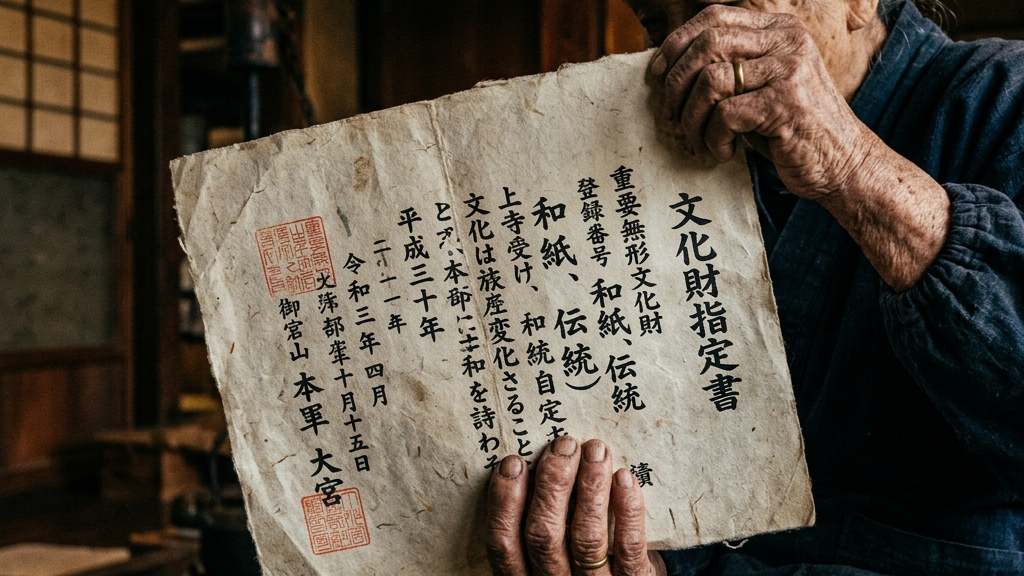 文化財指定書
重要無形文化財
登録番号 和紙、伝統
和紙、伝統）
上寺受け、和統自定
文化は族座変化さること
と 本 和を詩わ
平成三十年
二十一年
令和三年四月
十月十五日
御宮山 本軍 大宮